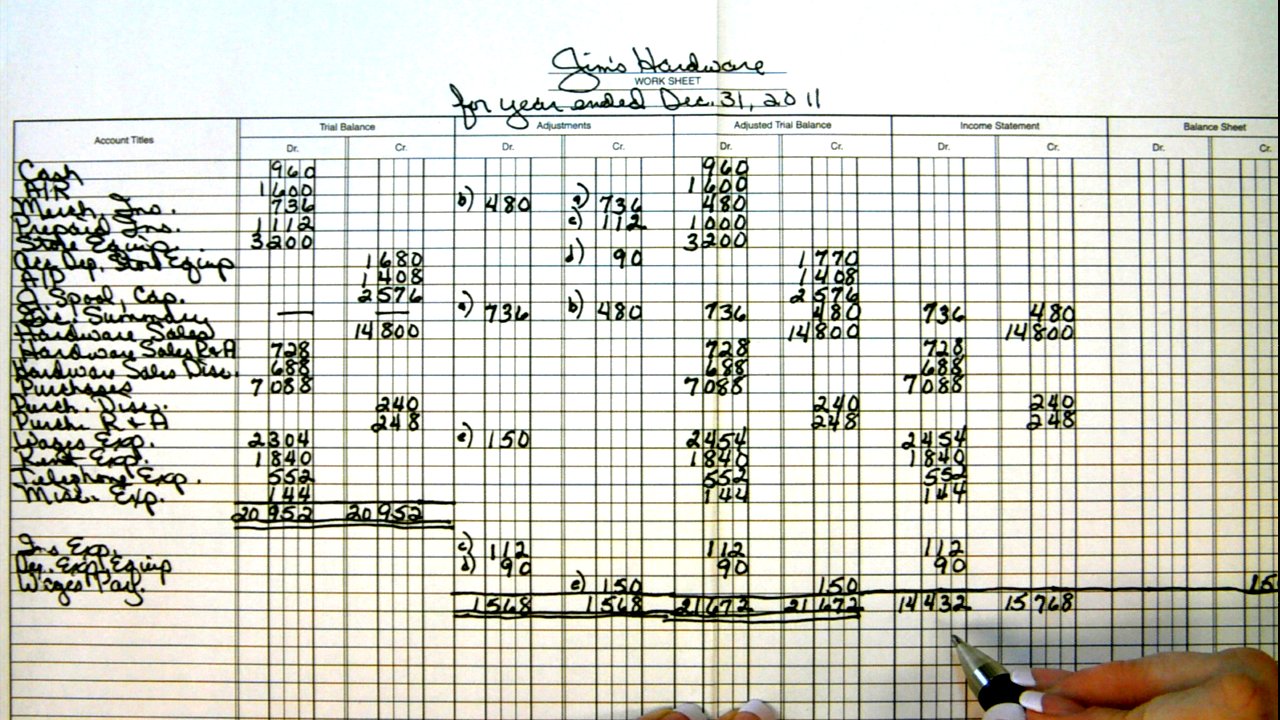 Jim's Hardware
WORK SHEET
for year ended Dec. 31, 2011
Account Titles Trial Balance Adjustments Adjusted Trial Balance Income Statement Balance Sheet
Dr. Cr. Dr. Cr. Dr. Cr. Dr. Cr. Dr. Cr.
Cash 960 960
A/R 1600 1600
Merch. Ins. 736 b) 480 a) 736 480
Prepaid Ins. 1112 c) 112 1000
Store Equip. 3200 3200
Acc. Dep. Store Equip 1680 d) 90 1770
A/P 1408 1408
J. Spool, Cap. 2576 2576
Inc. Summary — — a) 736 b) 480 736 480 736 480
Hardware Sales 14800 14800 14800
Hardware Sales R+A 728 728 728
Hardware Sales Disc. 688 688 688
Purchases 7088 7088 7088
Purch. Disc. 240 240 240
Purch. R+A 248 248 248
Wages Exp. 2304 e) 150 2454 2454
Rent Exp. 1840 1840 1840
Telephone Exp. 552 552 552
Misc. Exp. 144 144 144
20952 20952
Ins Exp. c) 112 112 112
Dep. Exp. Equip d) 90 90 90
Wages Pay. e) 150 150 15
1568 1568 21672 21672 14432 15768